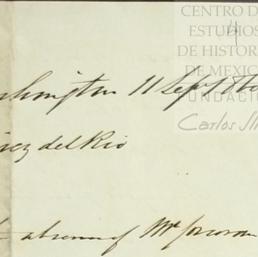 CENTRO DE
ESTUDIOS
DE HISTOR
DE MEXIC
FUNDACIÓ
Carlos Sli
shington 11 Sept
rez del Rio
absence of Mr Corcoran